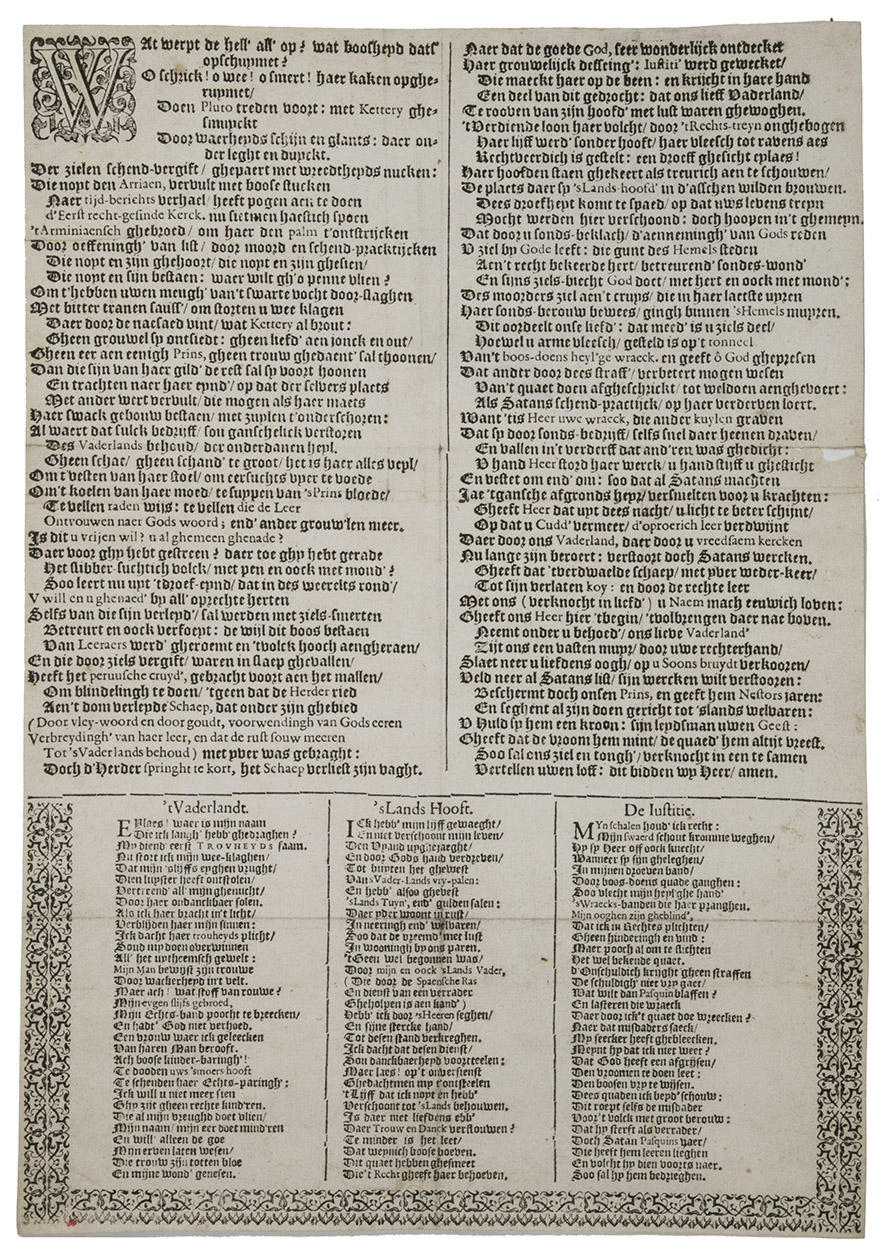 WAt werpt de hell' all' op? wat boosheyd dats'
opschuymet?
O schrick! o wee! o smert! haer kaken opghe-
ruymet/
Doen Pluto treden voort: met Kettery ghe-
smuyckt
Door waerheyds schijn en glants: daer on-
der leght en duyckt.
Der zielen schend-vergift/ ghepaert met wreedtheyds nucken:
Die nopt den Arriaen, vervult met boose stucken
Naer tijd-berichts verhael/ heeft pogen aen te doen
d'Eerst recht-gesinde Kerck. nu sietmen haestich spoen
't Arminiaensch ghebroed/ om haer den palm t'ontstrijcken
Door oeffeningh' van list/ door moord en schend-practijcken
Die nopt en zijn ghehoort/ die nopt en zijn ghesien/
Die nopt en sijn bestaen: waer wilt gh'o penne vlien?
Om t'hebben uwen meugh' van't swarte vocht door-slaghen
Met bitter tranen sauss'/ om storten u wee klagen
Daer door de naesaed vint/ wat Kettery al brout:
Gheen grouwel sy ontsiedt: gheen liefd' aen jonck en out/
Gheen eer aen eenigh Prins, gheen trouw ghedaent' sal thoonen/
Dan die sijn van haer gild' de rest sal sy voort hoonen
En trachten naer haer eynd'/ op dat der selvers plaets
Met ander wert vervult/ die mogen als haer maets
Haer swack gebouw bestaen/ met zuylen t'onderschoren:
Al waert dat sulck bedrijff/ sou ganschelick verstoren
Des Vaderlands behoud/ der onderdanen heyl.
Gheen schae/ gheen schand' te groot/ het is haer alles veyl/
Om t'vesten van haer stoel/ om eersuchts yver te voede
Om't koelen van haer moed/ te suppen van 'sPrins bloede/
Te vellen raden wijs: te vellen die de Leer
Ontvouwen naer Gods woord; end' ander grouw'len meer.
Is dit u vrijen wil? u al ghemeen ghenade?
Daer voor ghy hebt gestreen? daer toe ghy hebt gerade
Het slibber-suchtich volck/ met pen en oock met mond'?
Soo leert nu uyt 'tdroef-eynd/ dat in des weerelts rond'/
V will en u ghenaed' by all' oprechte herten
Selfs van die sijn verleyd'/ sal werden met ziels-smerten
Betreurt en oock verfoeyt: de wijl dit boos bestaen
Van Leeraers werd' gheroemt en 'tvolck hooch aengheraen/
En die door ziels vergift/ waren in slaep ghevallen/
Heeft het peruusche cruyd', gebracht voort aen het mallen/
Om blindelingh te doen/ 'tgeen dat de Herder ried
Aen't dom verleyde Schaep, dat onder zijn ghebied
(Door vley-woord en door goudt, voorwendingh van Gods eeren
Verbreydingh' van haer leer, en dat de rust souw meeren
Tot 'sVaderlands behoud) met yver was gebraght:
Doch d'Herder springht te kort, het Schaep verliest zijn vaght.
Naer dat de goede God, seer wonderlijck ontdecket
Haer grouwelijck desseing': Iustiti' werd gewecket/
Die maeckt haer op de been: en krijcht in hare hand
Een deel van dit gedrocht: dat ons lieff Vaderland/
Te rooven van zijn hoofd' met lust waren ghewoghen.
't Verdiende loon haer volcht/ door 'tRechts-treyn onghebogen
Haer lijff werd' sonder hooft/ haer vleesch tot ravens aes
Rechtveerdich is gestelt: een droeff ghesicht eylaes!
Haer hoofden staen ghekeert als treurich aen te schouwen/
De plaets daer sy 'sLands-hoofd' in d'asschen wilden brouwen.
Dees droefheyt komt te spaed/ op dat uws levens treyn
Mocht werden hier verschoond: doch hoopen in't ghemeyn.
Dat door u sonds-beklach/ d'aenneмingh' van Gods reden
V ziel by Gode leeft: die gunt des Hemels steden
Aen't recht bekeerde hert/ betreurend' sondes-wond'
En sijns ziels-biecht God doet/ met hert en oock met mond':
Des moorders ziel aen't cruys/ die in haer laetste uyren
Haer sonds-berouw bewees/ gingh binnen 'sHemels muyren.
Dit oordeelt onse liefd': dat meed' is u ziels deel/
Hoewel u arme vleesch/ gesteld is op't tonneel
Van't boos-doens heyl'ge wraeck. en geeft ô God ghepresen
Dat ander door dees straff'/ verbetert mogen wesen
Van't quaet doen afgheschrickt/ tot weldoen aenghevoert:
Als Satans schend-practijck/ op haer verderven loert.
Want 'tis Heer uwe wraeck, die ander kuylen graven
Dat sy door sonds-bedrijff/ selfs snel daer heenen draven/
En vallen in't verderff dat and'ren was ghedicht:
V hand Heer stord haer werck/ u hand stijft u ghesticht
En vestet om end' om: soo dat al Satans machten
Jae 'tgansche afgronds heyr/ versmelten voor u krachten:
Gheeft Heer dat uyt dees nacht/ u licht te beter schijnt/
Op dat u Cudd' vermeer/ d'oproerich leer verdwijnt
Daer door ons Vaderland, daer door u vreedsaem kercken
Nu lange zijn beroert: verstoort doch Satans wercken.
Gheeft dat 'tverdwaelde schaep/ met yver weder-keer/
Tot sijn verlaten koy: en door de rechte leer
Met ons (verknocht in liefd') u Naem mach eeuwich loven:
Gheeft ons Heer hier 'tbegin/ 'tvolbrengen daer nae boven.
Neemt onder u behoed'/ ons lieve Vaderland'
Tijt ons een vasten muyr/ door uwe rechterhand/
Slaet neer u liefdens oogh/ op u Soons bruydt verkooren/
Veld neer al Satans list/ sijn wercken wilt verstooren:
Beschermt doch onsen Prins, en geeft hem Nestors jaren:
En seghent al zijn doen gericht tot 'slands welvaren:
V Huld sy hem een kroon: sijn leydsman uwen Geest:
Gheeft dat de vroom hem mint/ de quaed' hem altijt vreest.
Soo sal ons ziel en tongh'/ verknocht in een te samen
Vertellen uwen loff: dit bidden wy Heer/ amen.
'tVaderlandt.
EYlaes! waer is mijn naam
Die ick langh' hebb' ghedraghen?
My diend' eerst TROVHEYDS faam.
Nu stort ick mijn wee-klaghen/
Dat mijn 'olijffs eyghen vrught/
Dien luyster heeft ontstolen/
Vertreend' all' mijn ghenucht/
Door haer ondanckbaer solen.
Als ick haer bracht in't licht/
Verblijden haer mijn sinnen:
Ick dacht haer trouheyds plicht/
Soud my doen overwinnen
All' het uytheemsch gewelt:
Mijn Man bewijst zijn trouwe
Door wackerheyd in't velt.
Maer ach! wat stoff van rouwe?
Mijn eygen slijfs gebroed,
Mijn Echts-band poocht te breecken/
En hadt' God niet verhoed.
Een vrouw waer ick geleecken
Van haren Man berooft.
Ach boose kinder-baringh'!
Te dooden uws 'smoers hooft
Te schenden haer Echts-paringh':
Ick will u niet meer sien
Ghy zijt gheen rechte kind'ren.
Die al mijn vreughd doet vlien/
Mijn naem/ mijn eer doet mind'ren
En will' alleen de goe
Mijn erven laten wesen/
Die trouw zijn totten bloe
En mijne wond' genesen.
'sLands Hooft.
ICk hebb' mijn lijff gewaeght/
En niet verschoont mijn leven/
Den Vyand uytghejaeght/
En door Gods hand verdreven/
Tot buyten het ghewest
Van sVader-Lands vry-palen:
En hebb' alsoo ghevest
'sLands Tuyn', end' gulden salen:
Daer yder woont in rust/
In neeringh end' welvaren/
Soo dat de vreemd' met lust
In wooningh by ons paren.
'tGeen wel begonnen was/
Door mijn en oock 'sLands Vader,
(Die door de Spaensche Ras
En dienst van een verrader
Gheholpen is aen kand')
Hebb' ick door 'sHeeren seghen/
En sijne stercke hand/
Tot desen stand verkreghen.
Ick dacht dat desen dienst/
Sou danckbaerheyd voortteelen:
Maer laes! op't onversienst
Ghedachtmen my t'ontsteelen
't Lijff dat ick noyt en hebb'
Verschoont tot 'sLands behouwen.
Is daer met liefdens ebb'
Daer Trouw en Danck verflouwen?
Te minder is het leet/
Dat weynich boose boeven.
Dit quaet hebben ghesmeet
Die't Recht gheeft haer behoeven.
De Iustitie.
MYn schalen houd' ick recht:
Mijn swaerd schout kromme weghen/
Hy sy Heer oft oock knecht/
Wanneer sy sijn gheleghen/
In mijnen droeven band/
Door boos-doens quade ganghen:
Soo vlecht mijn heyl'ghe hand'
'sWraecks-banden die haer pranghen.
Mijn ooghen zijn gheblind',
Dat ick in Rechtes plichten/
Gheen hinderingh en vind:
Maer pooch al om te stichten
Het wel bekende quaet.
d'Onschuldich krijght gheen straffen
De schuldigh' niet vry gaet/
Wat wilt dan Pasquin blaffen?
En lasteren die wraeck
Daer door ick't quaet doe wreecken?
Naer dat misdaders saeck/
My seecker heeft ghebleecken.
Meynt hy dat ick niet weet?
Dat God heeft een afgrijsen/
Den vroomen te doen leet:
Den boosen vry te wijsen.
Dees quaden ick beyd' schouw:
Dit roept selfs de misdader
Voor't volck met groot berouw:
Dat hy sterft als verrader/
Doch Satan Pasquins vaer/
Die heeft hem leeren lieghen
En volcht hy dien voorts naer.
Soo sal hy hem bedrieghen.